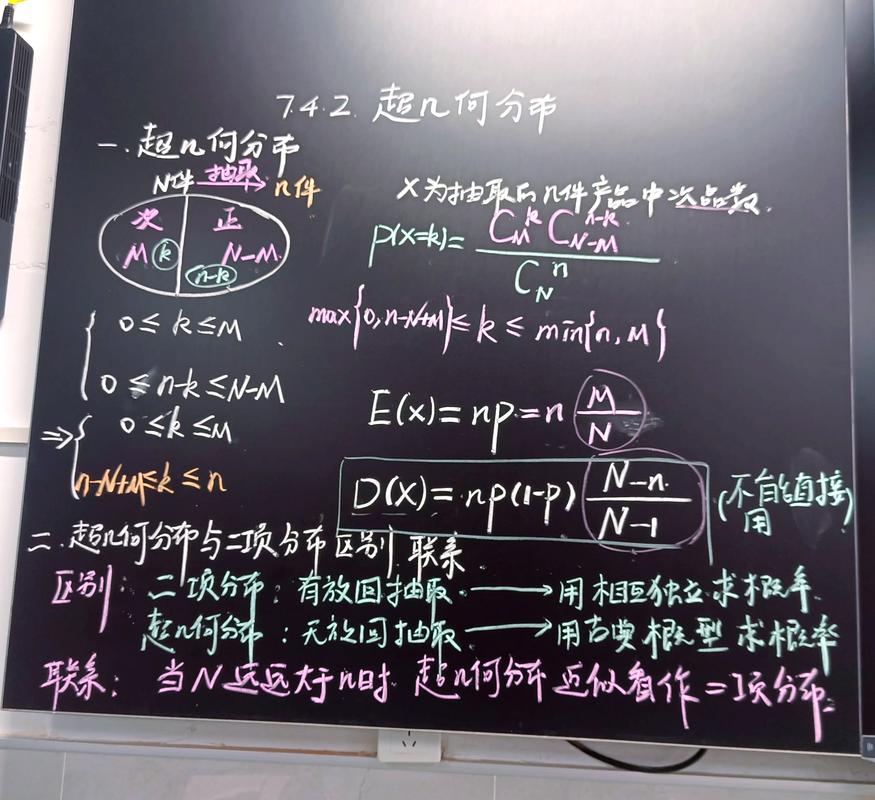 7.4.2. 超几何分布
一. 超几何分布
N件 抽取 n件
次 正
M k N-M
n-k
X为抽取的n件产品中次品数.
P(X=k)= C_M^k C_{N-M}^{n-k} / C_N^n
0≤k≤M
0≤n-k≤N-M
max{0,n-N+M}≤k≤min{n,M}
⇒ 0≤k≤M
n-N+M≤k≤n
E(X)=np=n M/N
D(X)=np(1-p) N-n/N-1 (不能直接用)
二.超几何分布与二项分布区别 联系
区别: 二项分布: 有放回抽取 → 用相互独立求概率.
超几何分布: 无放回抽取 → 用古典概型求概率
联系: 当N远远大于n时. 超几何分布近似看作二项分布.